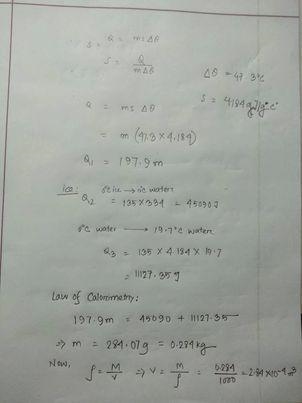 ∴ S = Q = ms Δθ
∴ S = Q / mΔθ
Δθ = 47.3°C
S = 4.184 J/g°C
Q = ms Δθ
= m (47.3 × 4.184)
Q₁ = 197.9 m
ice: 0°C ice → 0°C water
Q₂ = 135 × 334 = 45090 J
0°C water → 19.7°C water
Q₃ = 135 × 4.184 × 19.7
= 11127.35 J
Law of Calorimetry:
197.9 m = 45090 + 11127.35
⇒ m = 284.07 g = 0.284 kg
Now, ρ = M/V ⇒ V = M/ρ = 0.284/1000 = 2.84 × 10⁻⁴ m³